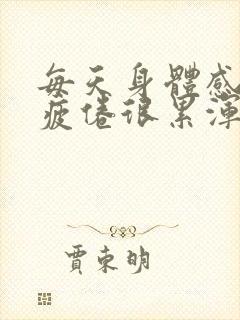 每天身體感
疲倦很累渾
賈東明